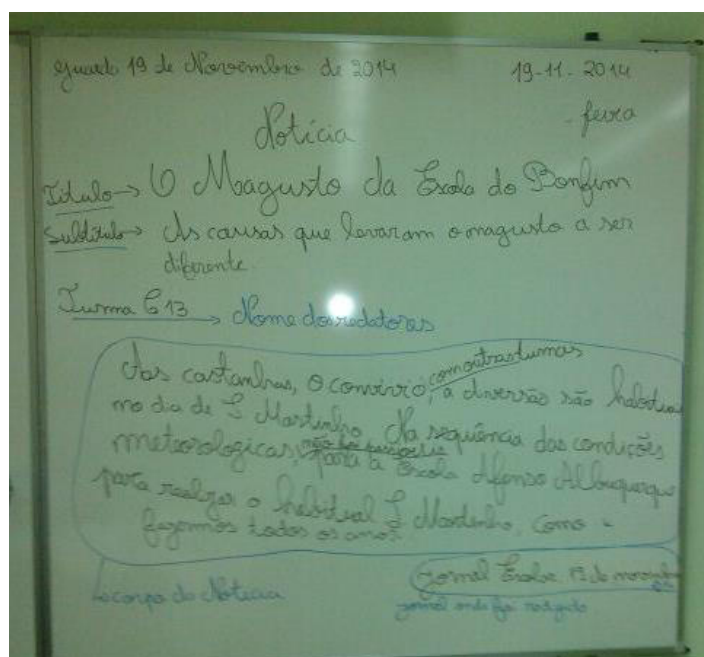 Guarda 19 de Novembro de 2014 19-11-2014
- feira
Notícia
Título → O Magusto da Escola do Bonfim
Subtítulo → As causas que levaram o magusto a ser
diferente.
Turma C13 → Nome dos redatores
As castanhas, o convívio com outras turmas, a diversão são habituais
no dia de S. Martinho. Na sequência das condições
meteorologicas, não foi para a Escola Afonso Albuquerque
para realizar o habitual S. Martinho, como
fazemos todos os anos.
Jornal Escolar 19 de novembro
↳ corpo da Notícia
jornal onde foi redigido